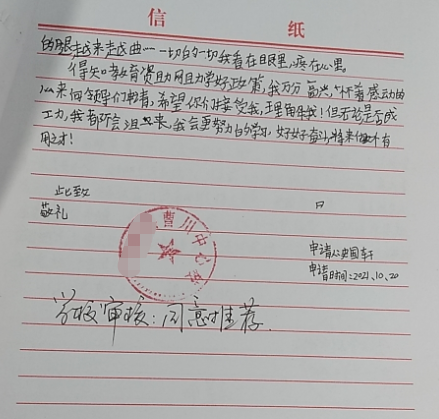 信 纸
的腿越来越曲……一切的一切我看在眼里,疼在心里。
得知教育资助网且力学好政策,我万分高兴,怀着感动的
心来向领导们报青,希望你们接受我,理解我!但无论是否成
功,我都不会沮丧,我会更努力的学习,好好奋斗,将来做个有
用之才!
此致
敬礼
日
曹川中心学
申请人:史国轩
申请时间:2021.10.20
学校审核:同意推荐.